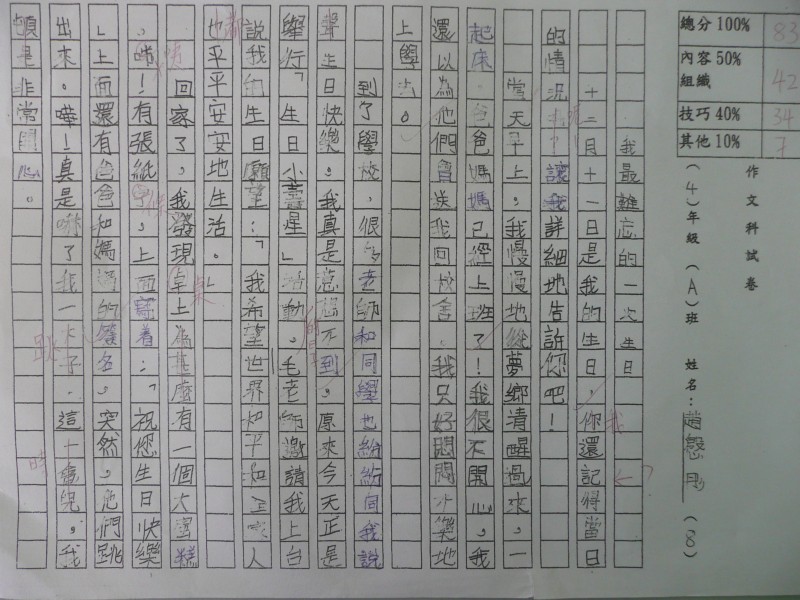 作文科試卷
(4)年級(A)班 姓名:趙 (8)
總分100% 83
內容50%
組織 42
技巧40% 34
其他10% 7
我最難忘的一次生日
十二月十一日是我的生日。你還記得當日
的情況 讓我詳細地告訴您吧!
當天早上,我慢慢地從夢鄉清醒過來,一
起床,爸爸媽媽已經上班了!我很不開心,我
還以為他們會送我回校舍。我只好悶悶不樂地
上學去。
到了學校,很多老師和同學也紛紛向我說
聲生日快樂。我真是意想不到,原來今天正是
舉行「生日小壽星」活動。毛老師邀請我上台
說我的生日願望:「我希望世界和平和 人
也平平安安地生活。」
回家了,我發現桌上為甚麼有一個大蛋糕
,咦!有張紙 ,上面寫着:「祝您生日快樂
」上面還有爸爸和媽媽的簽名。突然,他們跳
出來。嘩!真是嚇了我一大子。這 會兒,我
頓是非常開心。